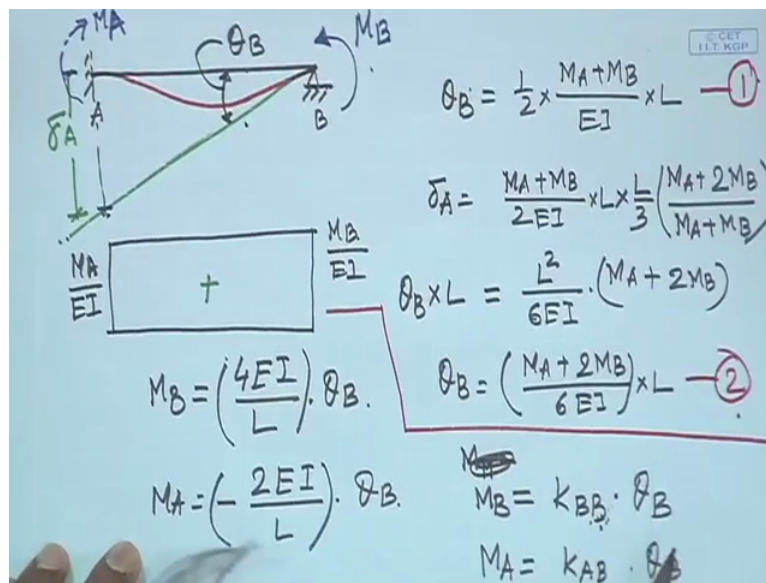 MA
θB
MB
© CET
I.I.T. KGP
A
B
δA
θB = 1/2 × (MA+MB)/EI × L — ①
δA = (MA+MB)/2EI × L × L/3 ((MA+2MB)/(MA+MB))
MA/EI
+
MB/EI
θB × L = L²/6EI · (MA + 2MB)
θB = ((MA + 2MB)/6EI) × L — ②
MB = (4EI/L) · θB.
MA = (- 2EI/L) · θB.
MB = KBB · θB
MA = KAB · θB